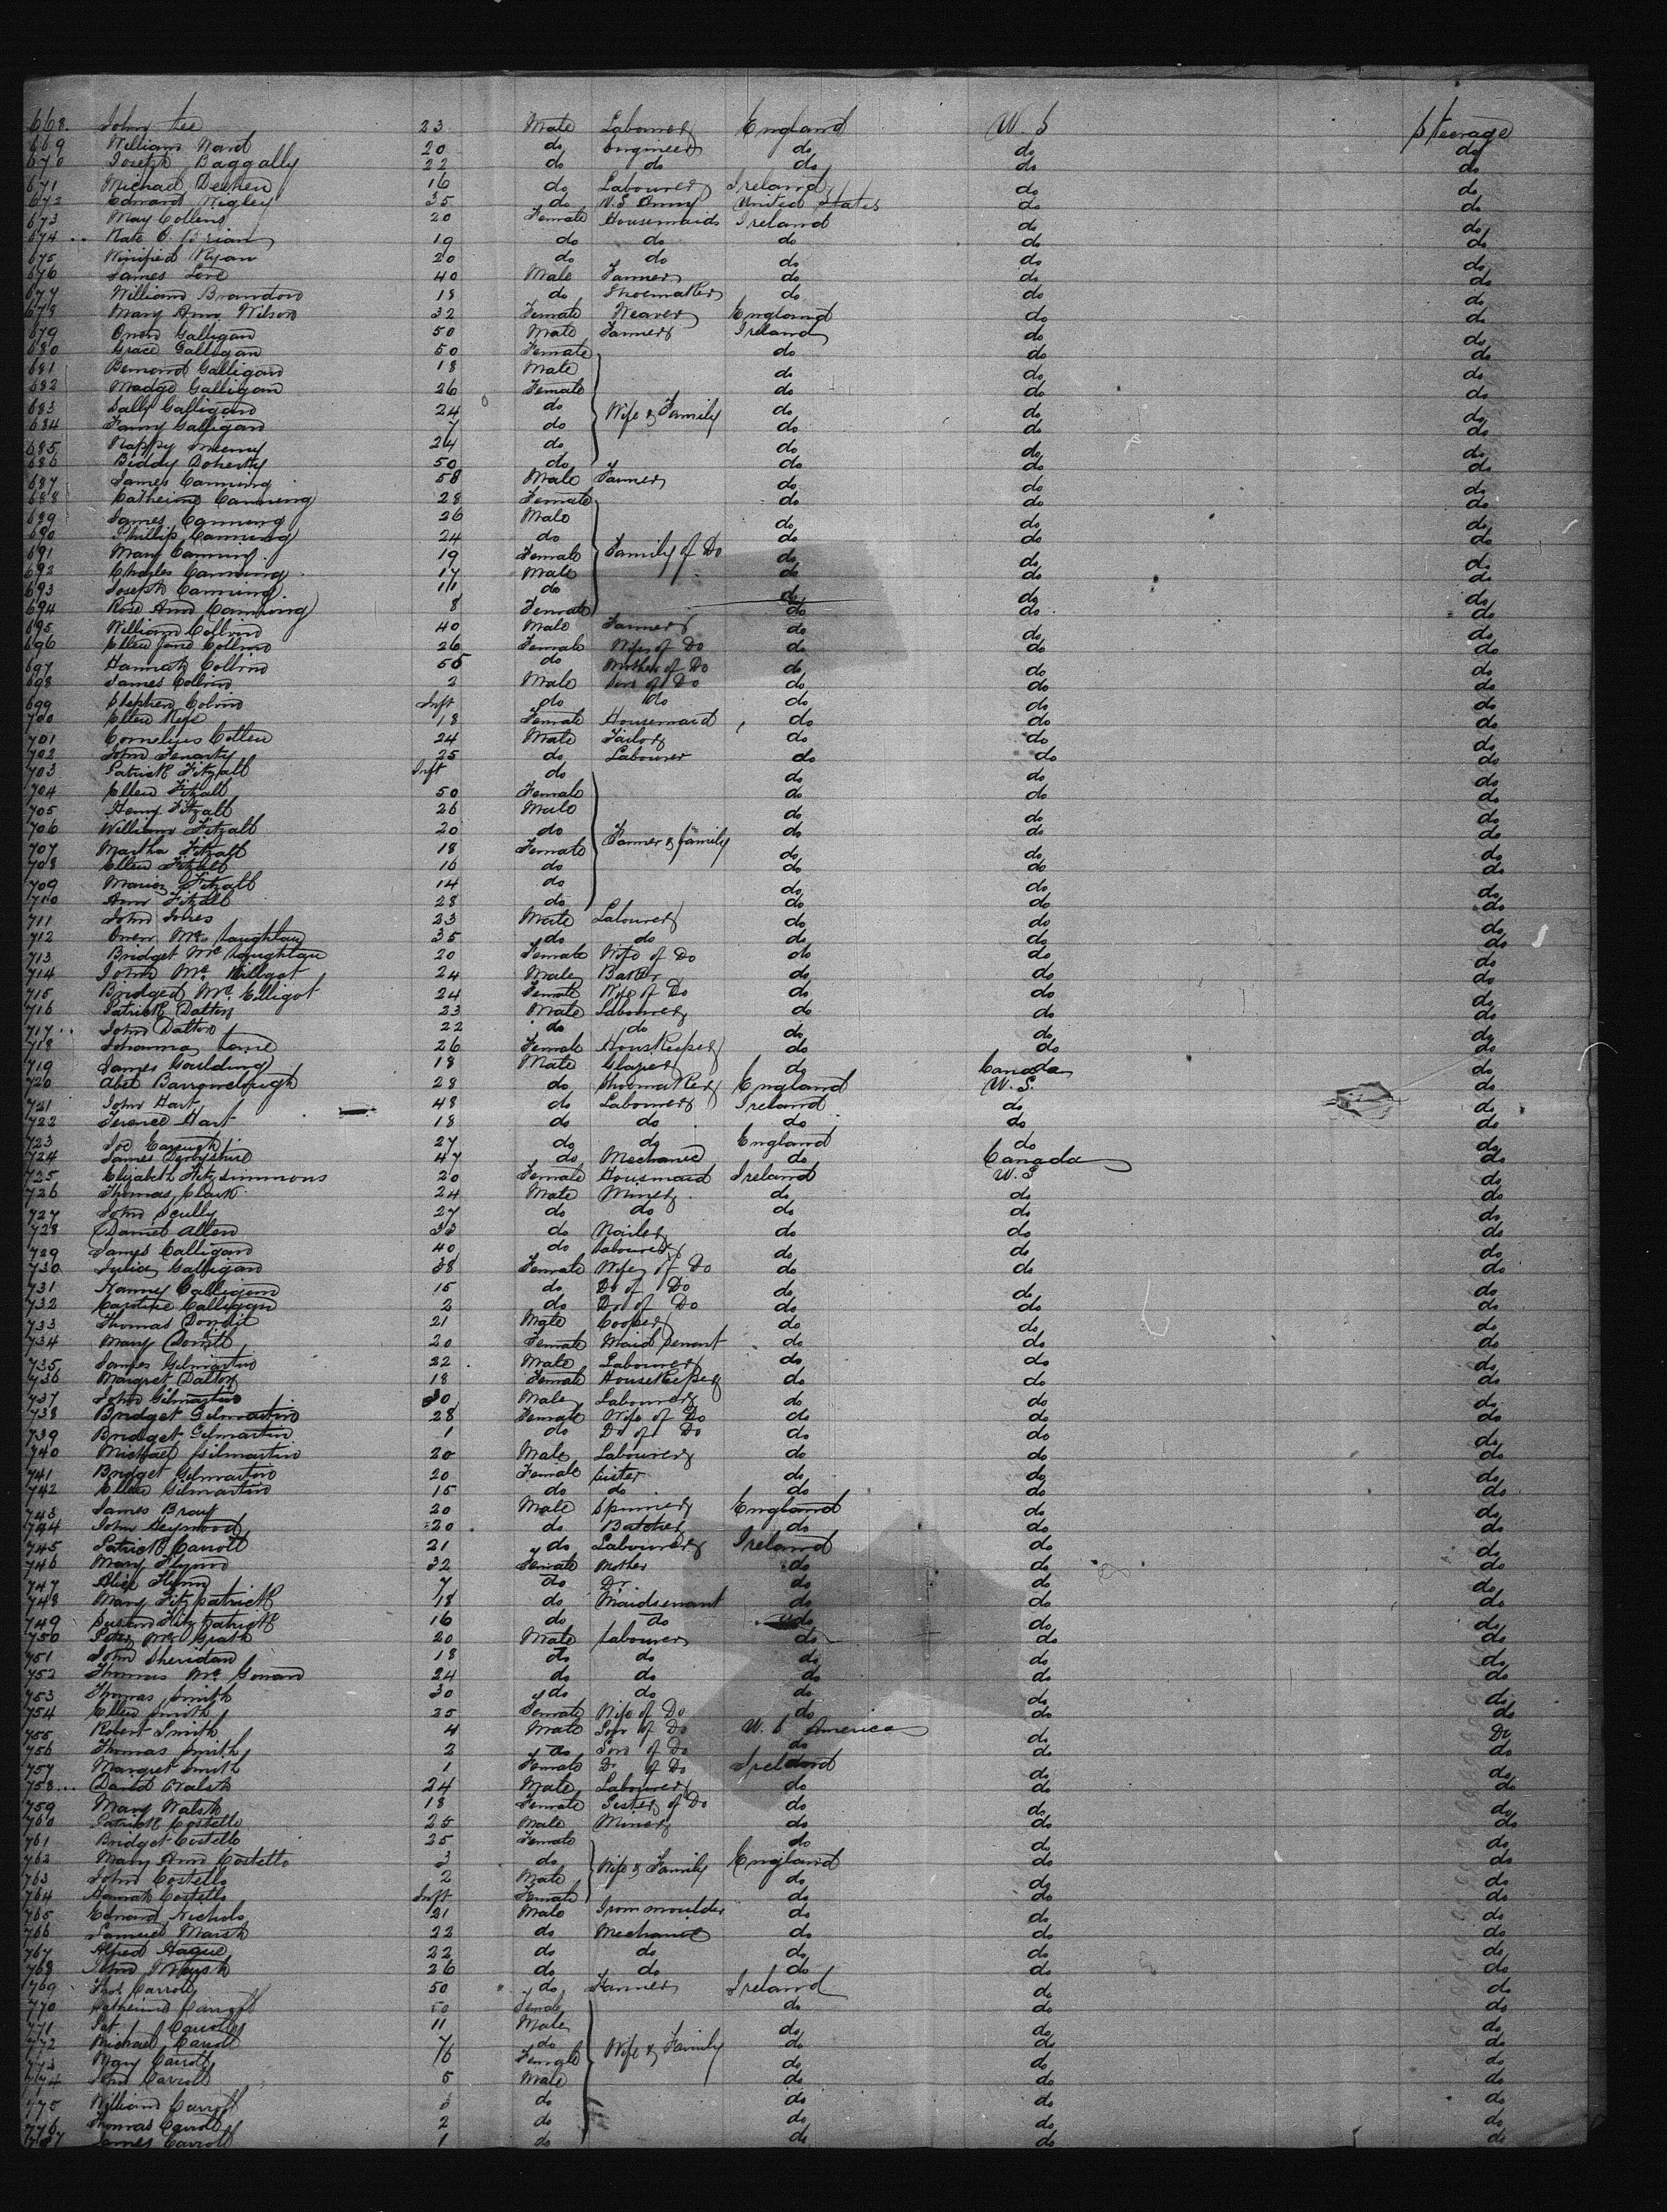 668. John Lee 23 Male Labourer England U. S Steerage
669 William Ward 20 do Engineer do do do
670 Joseph Baggally 22 do do do do do
671 Michael Deehen 16 do Labourer Ireland do do
672 Edward Wigley 35 do U.S Army United States do do
673 May Collens 20 Female Housemaids Ireland do do
674 Kate O. Brian 19 do do do do do
675 Winified Ryan 20 do do do do do
676 James Love 40 Male Farmer do do do
677 William Brandon 18 do Shoemaker do do do
678 Mary Ann Wilson 32 Female Weaver England do do
679 Owen Galligan 50 Male Farmer Ireland do do
680 Grace Galligan 50 Female do do do
681 Bernard Galligan 18 Male do do do
682 Madge Galligan 26 Female do do do
683 Sally Galligan 24 do Wife & Family do do do
684 Fanny Galligan 7 do do do do
685 Nappy 24 do do do do
686 Biddy Doherty 50 do do do do
687 James Canning 58 Male Farmer do do do
688 Catherine Canning 28 Female do do do
689 James Canning 26 Male do do do
690 Phillip Canning 24 do do do do
691 Mary Canning 19 Female Family of Do do do do
692 Charles Canning 17 Male do do do
693 Joseph Canning 11 do do do do
694 Rose Ann Canning 8 Female do do do
695 William Collvin 40 Male Farmer do do do
696 Ellen Jane Collvin 26 Female Wife of Do do do do
697 Hannah Collvin 55 do Mother of Do do do do
698 James Collvin 2 Male Son of Do do do do
699 Stephen Colvin Inft do do do do do
700 Ellen 18 Female Housemaid do do do
701 Cornelius Cotten 24 Male Tailor do do do
702 John Fenarty 25 do Labourer do do do
703 Patrick Fitzall Inft do do do do
704 Ellen Fitzall 50 Female do do do
705 Henry Fitzall 26 Male do do do
706 William Fitzall 20 do Farmer & family do do do
707 Martha Fitzall 18 Female do do do
708 Ellen Fitzall 16 do do do do
709 Marion Fitzall 14 do do do do
710 Ann Fitzall 28 do do do do
711 John Jones 23 Male Labourer do do do
712 Owen Mc Laughlan 35 do do do do do
713 Bridget Mc Laughlan 20 Female Wife of Do do do do
714 John Mc 24 Male Baker do do do
715 Bridged Mc Elligot 24 Female Wife of Do do do do
716 Patrick Dalton 23 Male Labourer do do do
717 John Dalton 22 do do do do do
718 Johanna Lane 26 Female HousKeeper do do do
719 James Goulding 18 Male Glaper do Canada do
720 Abel Barrowclough 28 do Shoemaker England U. S. do
721 John Hart 48 do Labourer Ireland do do
722 Terence Hart 18 do do do do do
723 Joe 27 do do England do do
724 James Derbyshire 47 do Mechanic do Canada do
725 Elizabeth Fitzsimmons 20 Female Housmaid Ireland U. S do
726 Thomas Clark 24 Male Miner do do do
727 John Scully 27 do do do do do
728 Daniel Allen 33 do Nailer do do do
729 James Calligan 40 do Labourer do do do
730 Julia Galligan 38 Female Wife of Do do do do
731 Nanny Calligan 15 do Dr of Do do do do
732 Caroline Calligan 2 do Dr of Do do do do
733 Thomas Dowdit 21 Male Cooper do do do
734 Mary 20 Female Maid Servant do do do
735 James Gilmartin 22 Male Labourer do do do
736 Margret Dalton 18 Female HouseKeeper do do do
737 John Gilmartin 30 Male Labourer do do do
738 Bridget Gilmartin 28 Female Wife of Do do do do
739 Bridget Gilmartin 1 do Dr of Do do do do
740 Michael Gilmartin 20 Male Labourer do do do
741 Bridget Gilmartin 20 Female Sister do do do
742 Ellen Gilmartin 15 do do do do do
743 James Bray 20 Male Spinner England do do
744 John Heywood 20 do Butcher do do do
745 Patrick Carroll 21 do Labourer Ireland do do
746 Mary Flynn 32 Female Mother do do do
747 Alice Flynn 7 do Dr do do do
748 Mary Fitzpatrick 18 do Maidservant do do do
749 Susan Fitzpatrick 16 do do do do do
750 Peter Mc Grath 20 Male Labourer do do do
751 John Sheridan 18 do do do do do
752 Thomas Mc Gowan 24 do do do do do
753 Thomas Smith 30 do do do do do
754 Ellen Smith 25 Female Wife of Do do do do
755 Robert Smith 4 Male Son of Do U. S America do Do
756 Thomas Smith 2 do Son of Do do do do
757 Margret Smith 1 Female Dr of Do Ireland do do
758 David Walsh 24 Male Labourer do do do
759 Mary Walsh 18 Female Sister of Do do do do
760 Patrick Costello 25 Male Miner do do do
761 Bridget Costello 25 Female do do do
762 Mary Ann Costello 3 do Wife & Family England do do
763 John Costello 2 Male do do do
764 Hannah Costello Inft Female do do do
765 Edward Nichols 21 Male Iron moulder do do do
766 Samuel Marsh 22 do Mechanic do do do
767 Alfred Hague 22 do do do do do
768 John 26 do do do do do
769 Thos Carroll 50 do Farmer Ireland do do
770 Catherine Carroll 50 Female do do do
771 Pat Carroll 11 Male do do do
772 Michael Carroll 7 do Wife & Family do do do
773 Mary Carroll 6 Female do do do
774 John Carroll 5 Male do do do
775 William Carroll 3 do do do do
776 Thomas Carroll 2 do do do do
777 James Carroll 1 do do do do